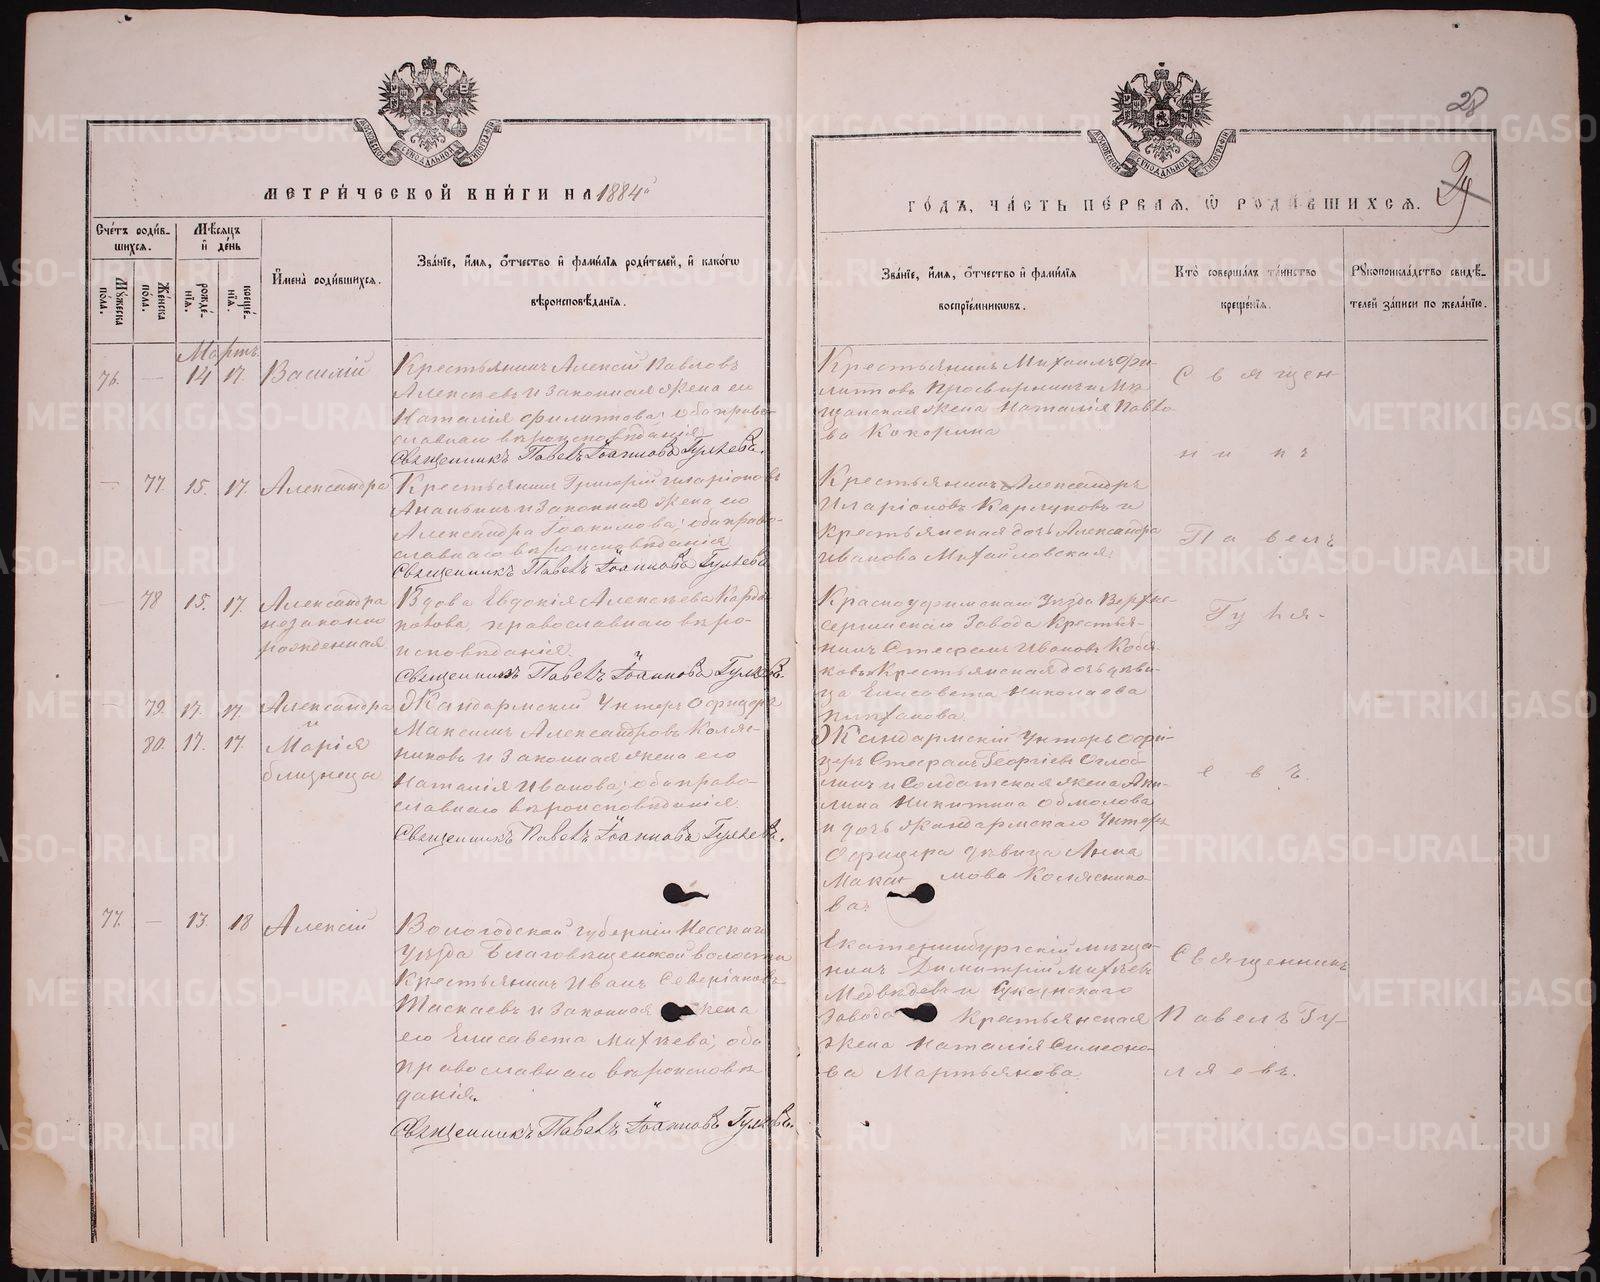 28
29
МОСКОВСКОЙ СѴНОДАЛЬНОЙ ТИПОГРАФІИ
МОСКОВСКОЙ СѴНОДАЛЬНОЙ ТИПОГРАФІИ
МЕТРИ́ЧЕСКОЙ КНИ́ГИ НА 1884й
ГО́ДЪ, ЧА́СТЬ ПЕ́РВАЯ, Ѿ РОДИ́ВШИХСЯ.
Сче́тъ роди́в-
шихся.
Мѣ́сяцъ
и҆ де́нь
Мꙋ́жеска
по́ла.
Же́нска
по́ла.
рожде́-
нїя.
креще́-
нїя.
И҆мена̀ роди́вшихся.
Зва́нїе, и҆́мя, ѻ҆́тчество и҆ фамѝлїя роди́телей, и҆ како́гѡ
вѣроисповѣ́данїя.
Зва́нїе, и҆́мя, ѻ҆́тчество и҆ фамѝлїя
воспрїе́мниковъ.
Кто̀ соверша́лъ та́инство
креще́нїя.
Рꙋкоприкла́дство свидѣ́-
телей за́писи по жела́нїю.
Мартъ
76. — 14 17. Василій
Крестьянинъ Алексій Павловъ
Алексѣевъ и законная жена его
Наталія Филиппова; оба право-
славнаго вѣроисповѣданія
Священникъ Павелъ Іоанновъ Гуляевъ.
Крестьянинъ Михаилъ Фи-
липповъ Просвирнинъ и Мѣ
щанская жена Наталія Павло
ва Кокорина
Священ
— 77. 15. 17. Александра
Крестьянинъ Григорій Иларіоновъ
Ананьинъ и законная жена его
Александра Іоакимова; оба право-
славнаго вѣроисповѣданія
Священникъ Павелъ Іоанновъ Гуляевъ
Крестьянинъ Александръ
Иларіоновъ и
крестьянская дочь Александра
Иванова Михайловская.
никъ
Павелъ
— 78 15. 17. Александра
незаконно
рожденная
Вдова Евдокія Алексѣева
православнаго вѣро-
исповѣданія.
Священникъ Павелъ Іоанновъ Гуляевъ.
Красноуфимскаго уѣзда Верхне
сергинскаго Завода Крестья-
нинъ Стефанъ Ивановъ
крестьянская дочь дѣви-
ца Елисавета Николаева
Гуля-
— 79. 17. 17. Александра
80. 17. 17. и Марія
близнецы
Жандармскій Унтеръ Офицеръ
Максимъ Александровъ Коляс-
никовъ и законная жена его
Наталія Иванова; оба право-
славнаго вѣроисповѣданія.
Священникъ Павелъ Іоанновъ Гуляевъ.
Жандармскій Унтеръ Офи-
церъ Стефанъ Георгіевъ Оглоб
линъ и Солдатская жена Аки-
лина Никитина
и дочь жандармскаго Унтеръ
Офицера дѣвица Анна
Макси мова Коляснико
ва.
евъ.
77. — 13. 18 Алексій
Вологодской губерніи
уѣзда Благовѣщенской волости
Крестьянинъ Иванъ Северіановъ
и законная жена
его Елисавета Михѣева; оба
православнаго вѣроисповѣ
данія.
Священникъ Павелъ Іоанновъ Гуляевъ.
Екатеринбургскій мѣща-
нинъ Димитрій Михѣевъ
Медвѣдевъ и Суксунскаго
Завода Крестьянская
жена Наталія Симеоно-
ва Мартьянова.
Священникъ
Павелъ Гу-
ляевъ.